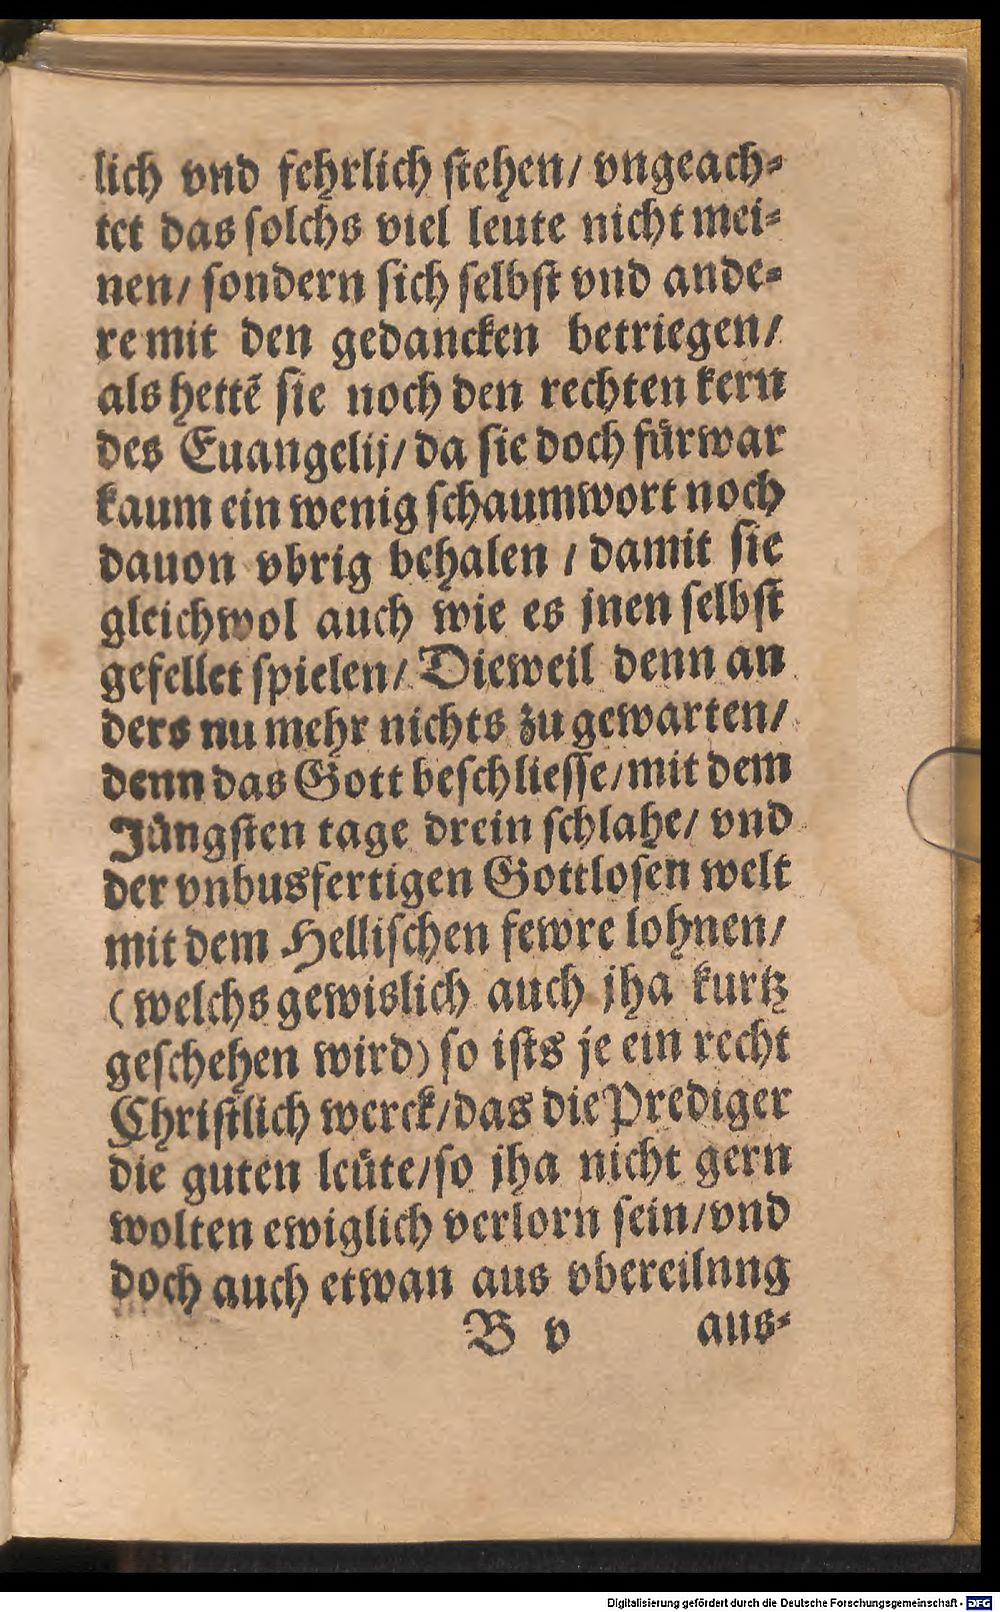 lich vnd fehrlich stehen/ vngeach⸗
tet das solchs viel leute nicht mei⸗
nen/ sondern sich selbst vnd ande⸗
re mit den gedancken betriegen/
als hettẽ sie noch den rechten kern
des Euangelij/ da sie doch fürwar
kaum ein wenig schaumwort noch
dauon vbrig behalen / damit sie
gleichwol auch wie es jnen selbst
gefellet spielen/ Dieweil denn an
ders nu mehr nichts zu gewarten/
denn das Gott beschliesse/mit dem
Jüngsten tage drein schlahe/ vnd
der vnbusfertigen Gottlosen welt
mit dem Hellischen fewre lohnen/
(welchs gewislich auch jha kurtz
geschehen wird) so ists je ein recht
Christlich werck/das die Prediger
die guten leüte/so jha nicht gern
wolten ewiglich verlorn sein/vnd
doch auch etwan aus vbereilnng
B v aus⸗
Digitalisierung gefördert durch die Deutsche Forschungsgemeinschaft - DFG